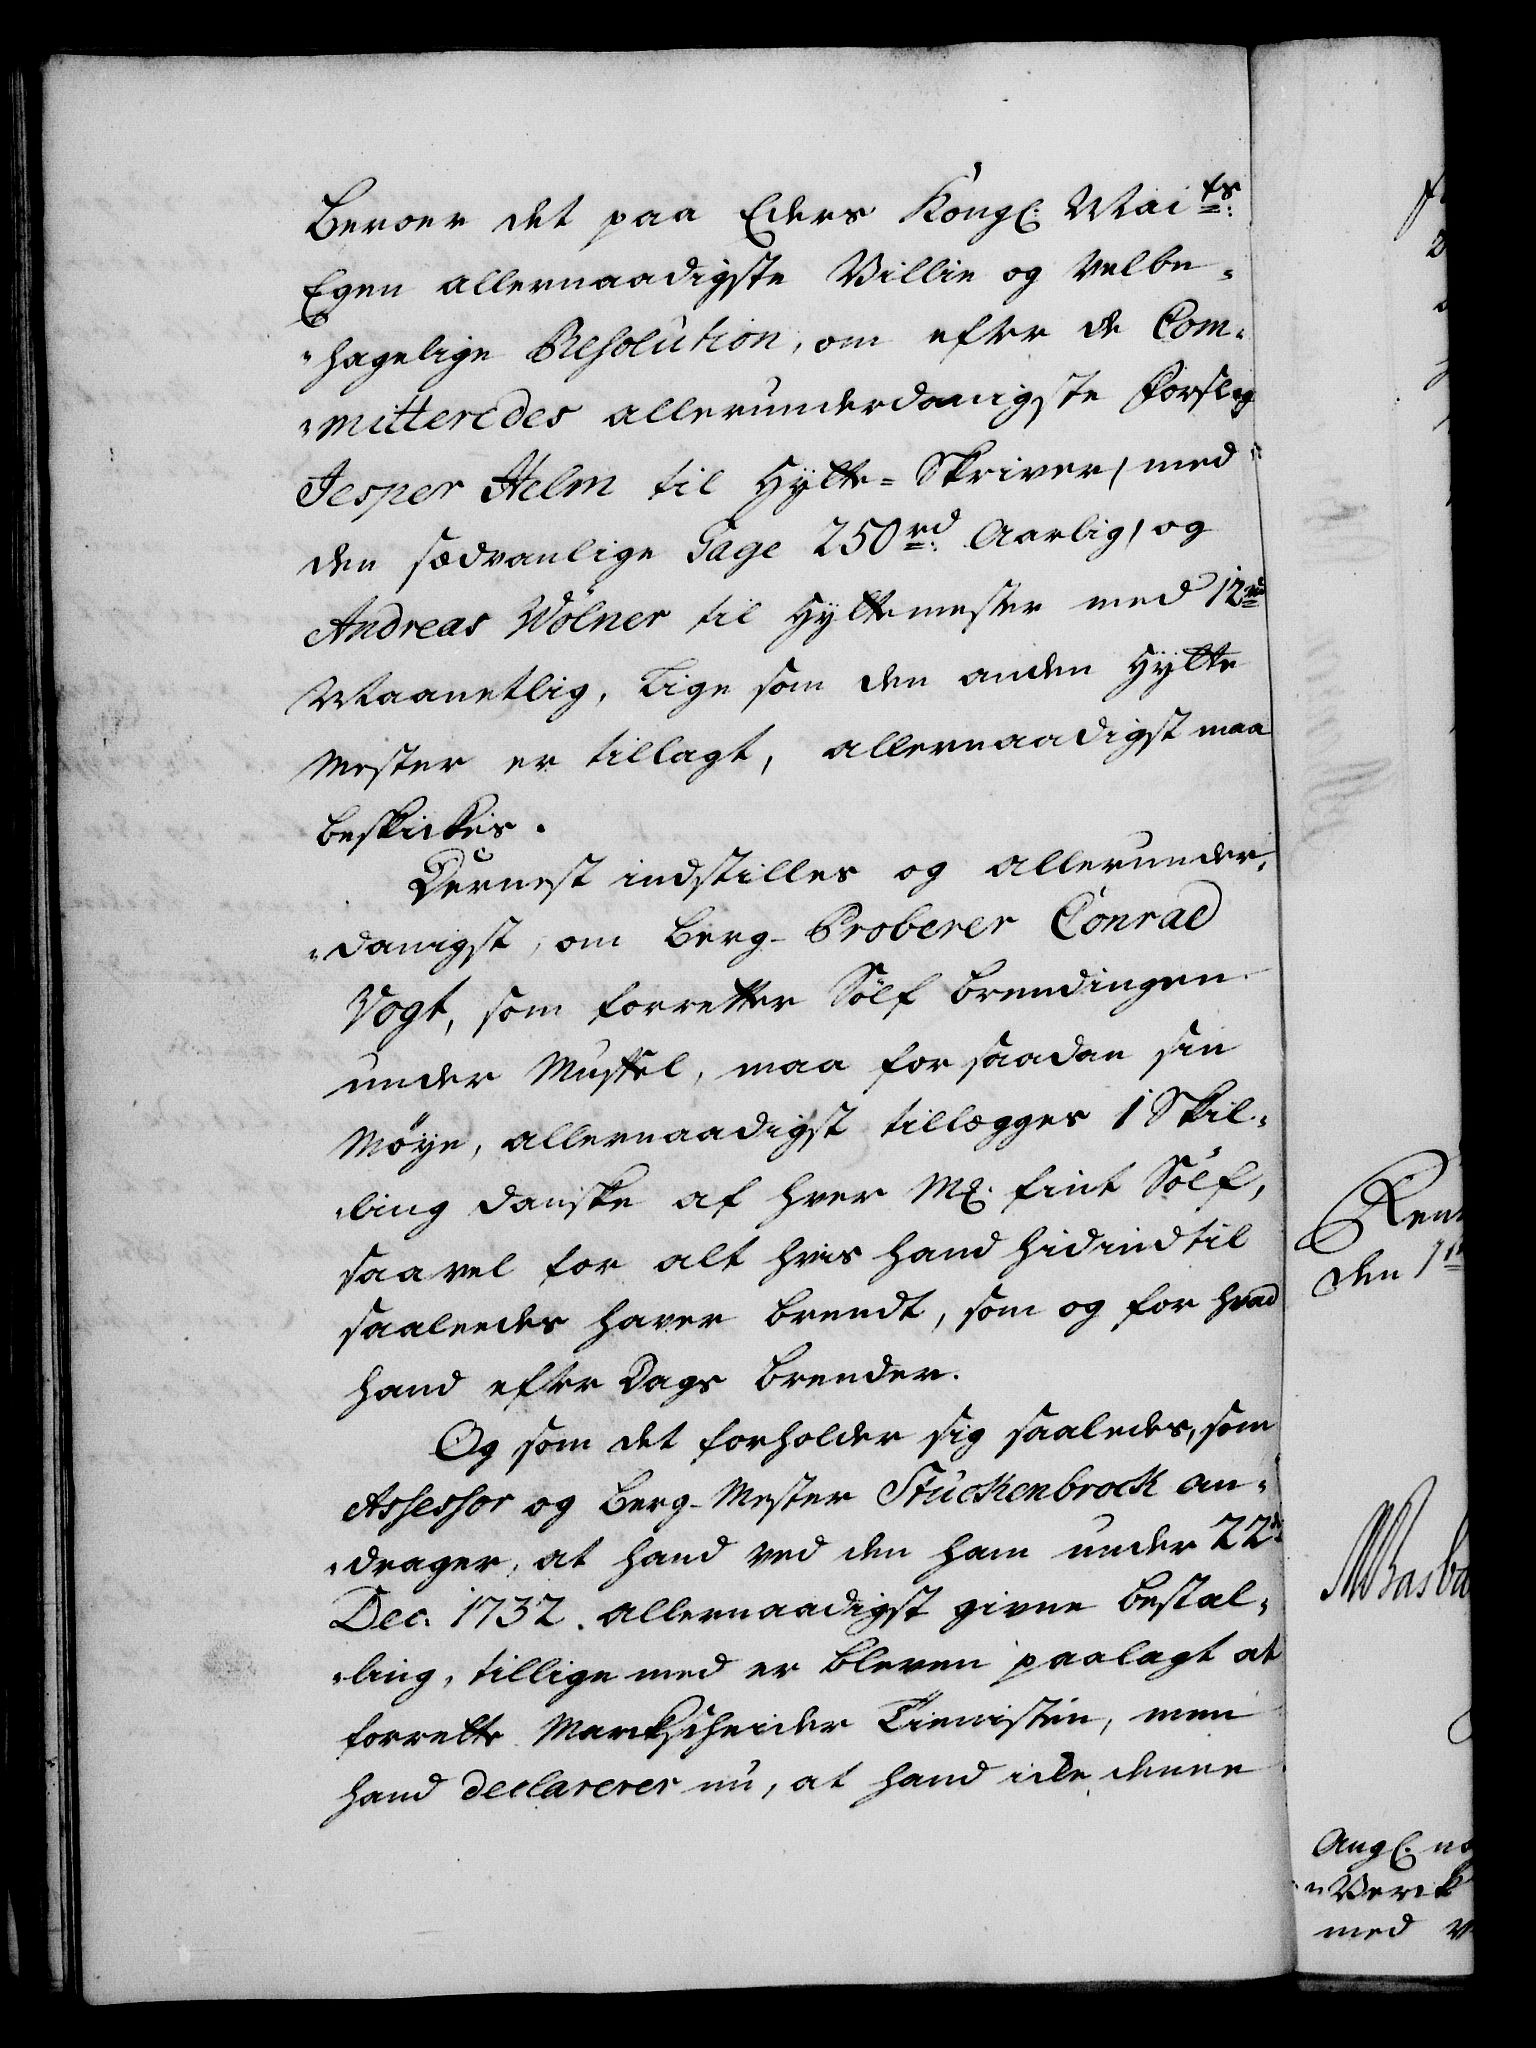 Beroer det paa Eders Kongl: Maits:
Egen allernaadigste Villie og Velbe-
-hagelige Resolution, om efter de Com-
-mitteredes allerunderdanigste Forslag
Jesper Helm til Hytte-Skriver, med
den sædvanlige Gage 250 rd: Aarlig, og
Andreas Wölner til Hyttemester med 12 rd
Maanetlig, Lige som den anden Hytte
Mester er tillagt, allernaadigst maa
beskickes.
Dernest indstilles og allerunder-
-danigst, om Berg-Proberer Conrad
Vogt, som forretter Sölf brendingen
under Muffel, maa for saadan sin
Möye, allernaadigst tillægges 1 Skil-
-ling danske af hver Mk: fint Sölf,
saavel for alt hvis hand hidindtil
saaledes haver brendt, som og for hvad
hand efter Dags brender.
Og som det forholder sig saaledes, som
Assessor og Berg-Mester Stuckenbrock an-
-drager, at hand ved den ham under 22de
Dec: 1732. allernaadigst givne Bestal-
-ling, tillige med er bleven paalagt at
forrette Marckscheider Tienisten, men
hand declarerer nu, at hand icke denne
Rent
den 1
Angl: no
-Verck
med